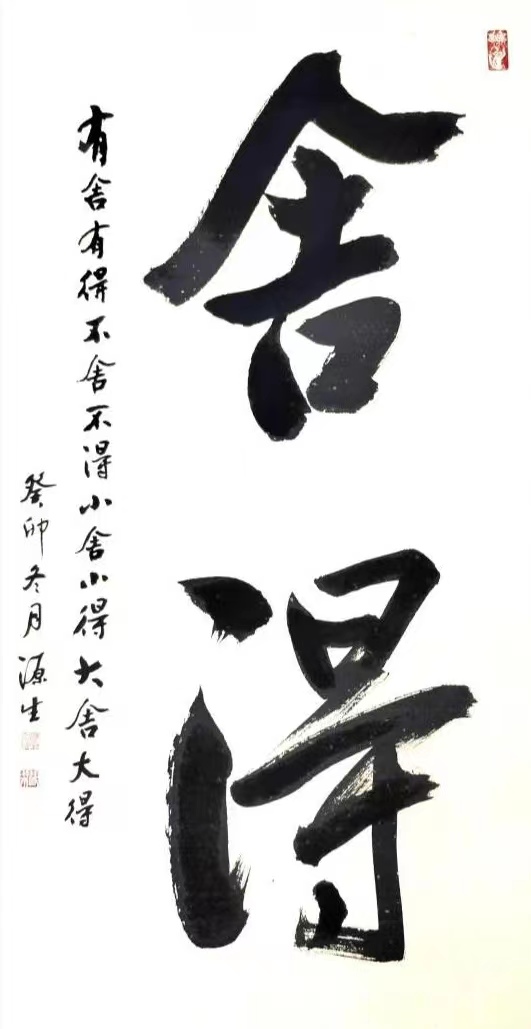 舍得
有舍有得不舍不得小舍小得大舍大得
癸卯冬月源生